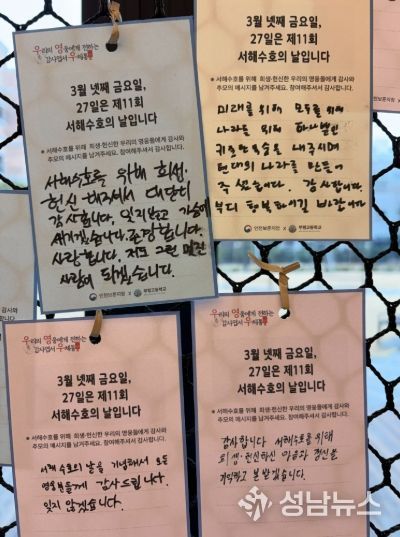 우리의 영웅에게 전하는
감사엽서 우체통
3월 넷째 금요일,
27일은 제11회
서해수호의 날입니다
※ 서해수호를 위해 희생·헌신한 우리의 영웅들에게 감사와
추모의 메시지를 남겨주세요. 참여해주셔서 감사합니다.
서해수호를 위해 희생
헌신 해주셔서 대단히
감사합니다. 잊지않고 가슴에
새기겠습니다. 존경합니다.
사랑합니다. 저도 그런 멋진
사람이 되겠습니다.
인천보훈지청 X 부평고등학교
3월 넷째 금요일,
27일은 제11회
서해수호의 날입니다
※ 서해수호를 위해 희생·헌신한 우리의 영웅들에게 감사와
추모의 메시지를 남겨주세요. 참여해주셔서 감사합니다.
미래를 위해 모두를 위해
나라를 위해 하나뿐인
귀중한 목숨을 내주시며
현대의 나라를 만들어
주셨습니다. 감사합니다.
부디 행복하시길 바랍니다
인천보훈지청 X 부평고등학교
우리의 영웅에게 전하는
감사엽서 우체통
3월 넷째 금요일,
27일은 제11회
서해수호의 날입니다
※ 서해수호를 위해 희생·헌신한 우리의 영웅들에게 감사와
추모의 메시지를 남겨주세요. 참여해주셔서 감사합니다.
서해 수호의 날을 기념해서 모든
영웅분들께 감사드립니다.
잊지 않겠습니다.
우리의 영웅에게 전하는
감사엽서 우체통
3월 넷째 금요일,
27일은 제11회
서해수호의 날입니다
※ 서해수호를 위해 희생·헌신한 우리의 영웅들에게 감사와
추모의 메시지를 남겨주세요. 참여해주셔서 감사합니다.
감사합니다 서해수호를 위해
희생·헌신하신 마음과 정신을
기억하고 본받겠습니다.
성남뉴스